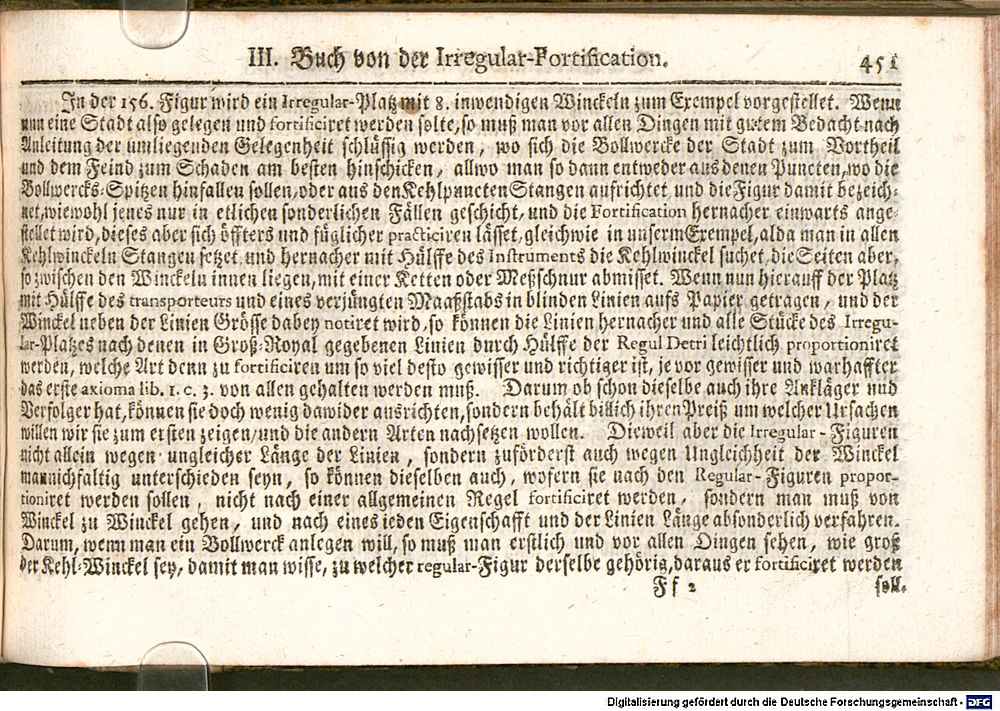 III. Buch von der Irregular-Fortification. 451
In der 156. Figur wird ein Irregular-Platz mit 8. inwendigen Winckeln zum Exempel vorgestellet. Wenn
nun eine Stadt also gelegen und fortificiret werden solte, so muß man vor allen Dingen mit gutem Bedacht nach
Anleitung der umliegenden Gelegenheit schlüssig werden, wo sich die Bollwercke der Stadt zum Vortheil
und dem Feind zum Schaden am besten hinschicken, allwo man so dann entweder aus denen Puncten, wo die
Bollwercks-Spitzen hinfallen sollen, oder aus den Kehlpuncten Stangen aufrichtet und die Figur damit bezeich-
net, wiewohl jenes nur in etlichen sonderlichen Fällen geschicht, und die Fortification hernacher einwarts ange-
stellet wird, dieses aber sich öffters und füglicher practiciren lässet, gleichwie in unserm Exempel, alda man in allen
Kehlwinckeln Stangen setzet und hernacher mit Hülffe des Instruments die Kehlwinckel suchet, die Seiten aber,
so zwischen den Winckeln innen liegen, mit einer Ketten oder Meßschnur abmisset. Wenn nun hierauff der Platz
mit Hülffe des transporteurs und eines verjüngten Maaßstabs in blinden Linien aufs Papier getragen, und der
Winckel neben der Linien Grösse dabey notiret wird, so können die Linien hernacher und alle Stücke des Irregu-
lar-Platzes nach denen in Groß-Royal gegebenen Linien durch Hülffe der Regul Detri leichtlich proportioniret
werden, welche Art denn zu fortificiren um so viel desto gewisser und richtiger ist, je vor gewisser und warhaffter
das erste axioma lib. 1. c. 3. von allen gehalten werden muß. Darum ob schon dieselbe auch ihre Ankläger und
Verfolger hat, können sie doch wenig dawider ausrichten, sondern behält billich ihren Preiß um welcher Ursachen
willen wir sie zum ersten zeigen/ und die andern Arten nachsetzen wollen. Dieweil aber die Irregular-Figuren
nicht allein wegen ungleicher Länge der Linien, sondern zuförderst auch wegen Ungleichheit der Winckel
mannichfaltig unterschieden seyn, so können dieselben auch, wofern sie nach den Regular-Figuren propor-
tioniret werden sollen, nicht nach einer allgemeinen Regel fortificiret werden, sondern man muß von
Winckel zu Winckel gehen, und nach eines ieden Eigenschafft und der Linien Länge absonderlich verfahren.
Darum, wenn man ein Bollwerck anlegen will, so muß man erstlich und vor allen Dingen sehen, wie groß
der Kehl-Winckel sey, damit man wisse, zu welcher regular-Figur derselbe gehörig, daraus er fortificiret werden
Ff 2 soll.
Digitalisierung gefördert durch die Deutsche Forschungsgemeinschaft - DFG